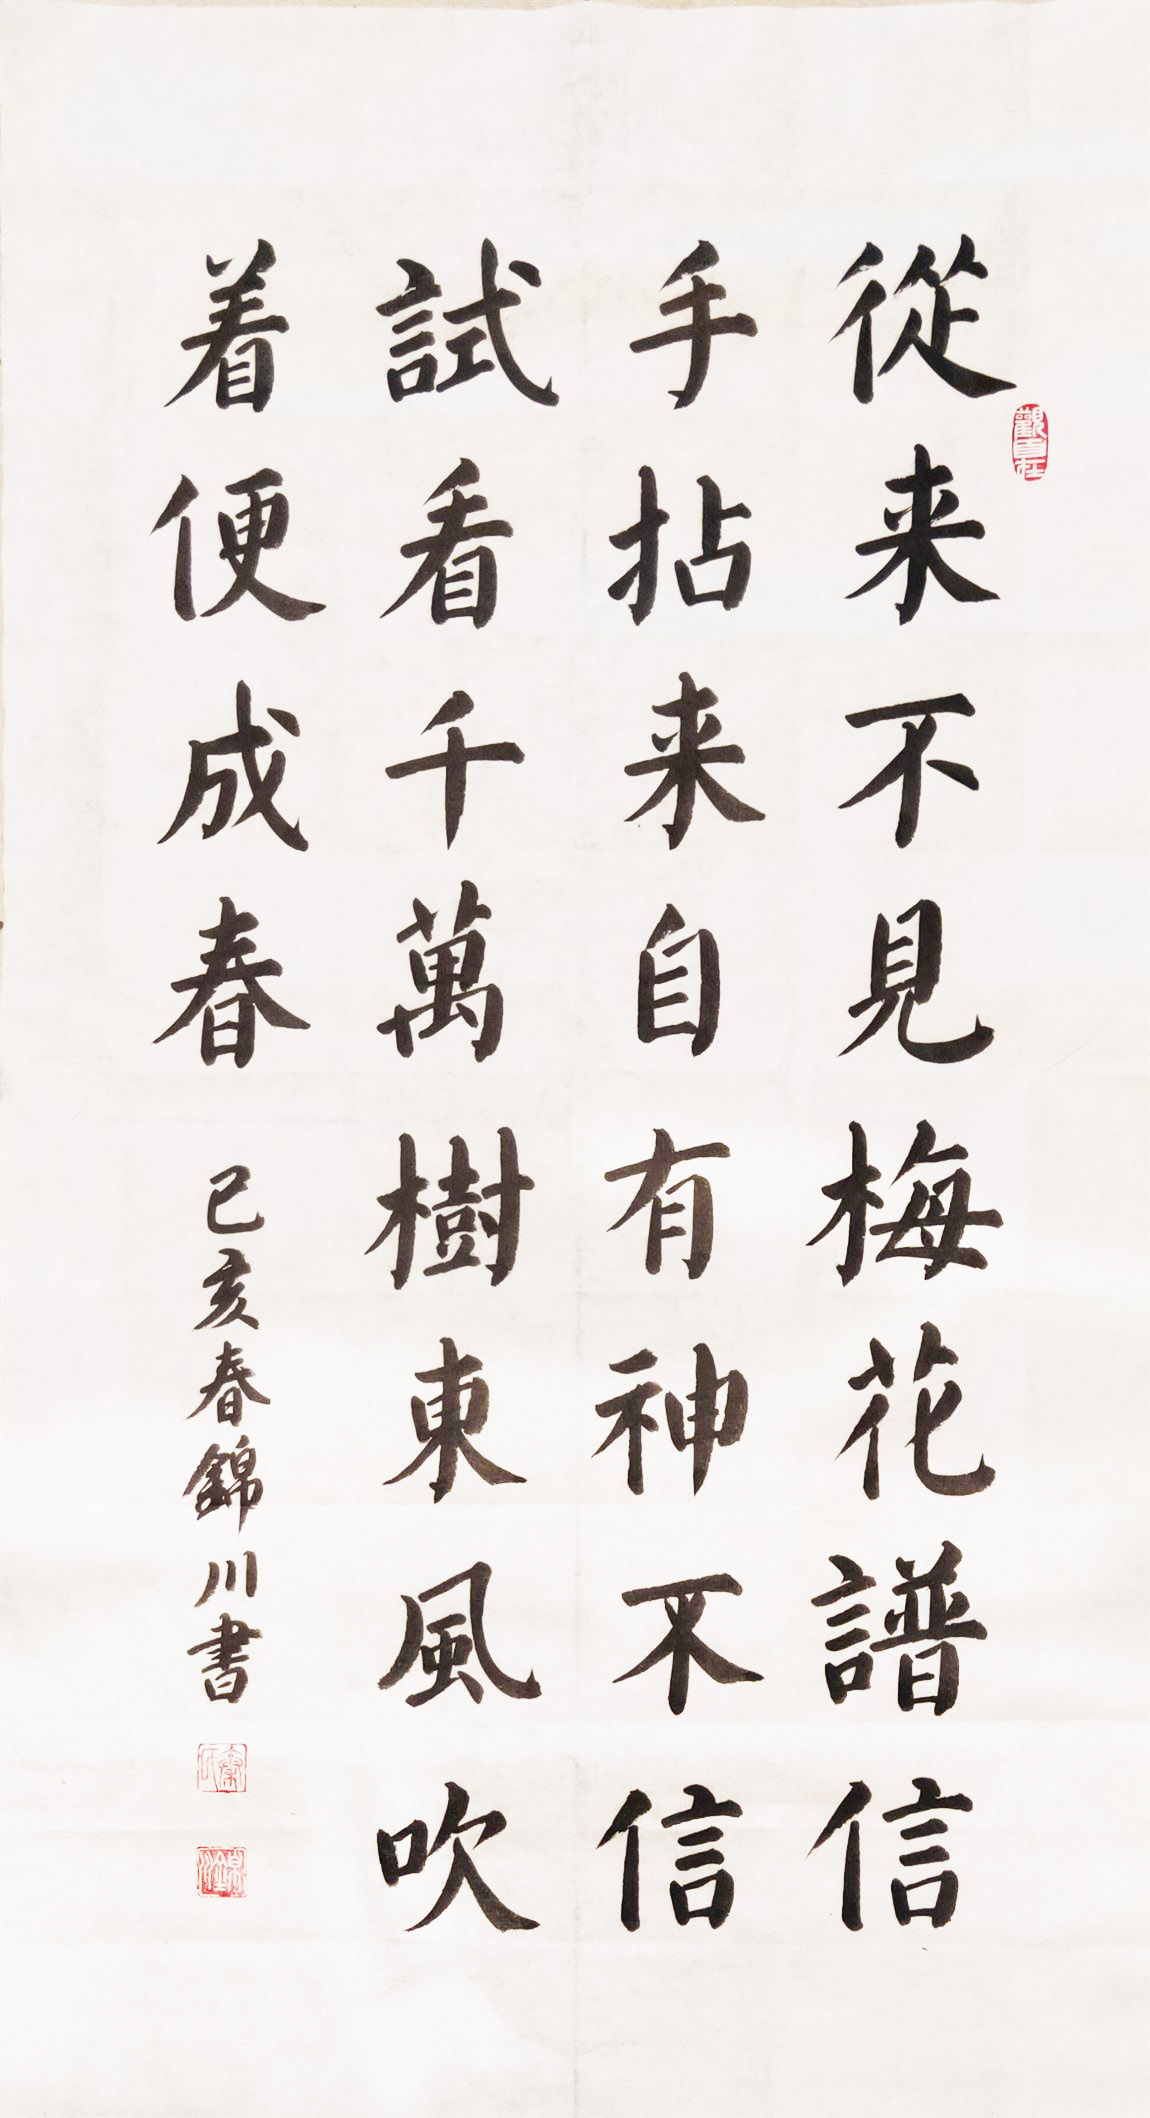 從来不見梅花譜信
手拈来自有神不信
試看千萬樹東風吹
着便成春
己亥春錦川書